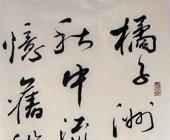 橘子洲
秋中流
憶舊